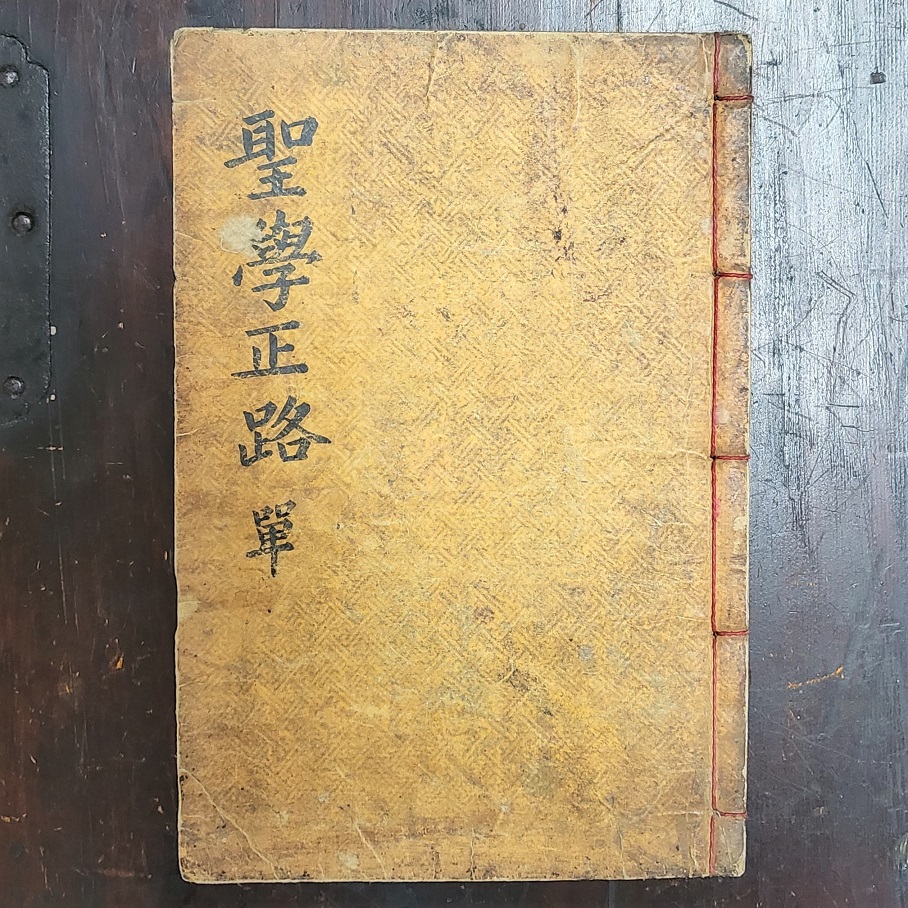 聖學正路 單